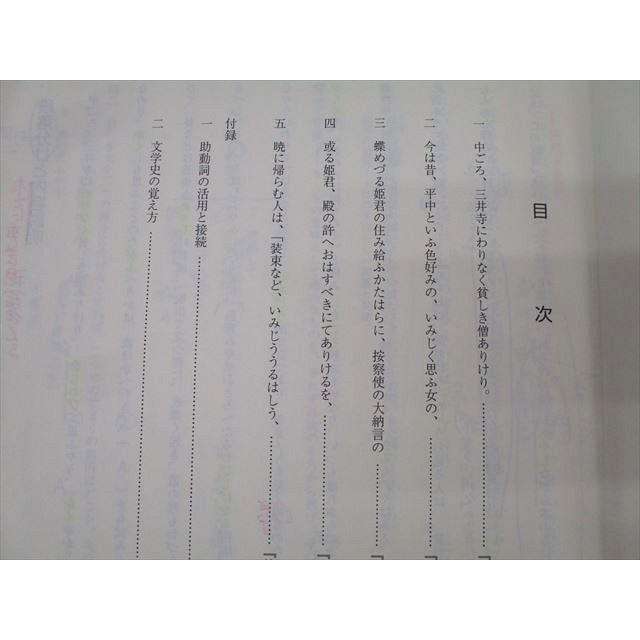 目次
一 中ごろ、三井寺にわりなく貧しき僧ありけり。
二 今は昔、平中といふ色好みの、いみじく思ふ女の、
三 蝶めづる姫君の住み給ふかたはらに、按察使の大納言の
四 或る姫君、殿の許へおはすべきにてありけるを、
五 暁に帰らむ人は、「装束など、いみじううるはしう、
付録
一 助動詞の活用と接続
二 文学史の覚え方